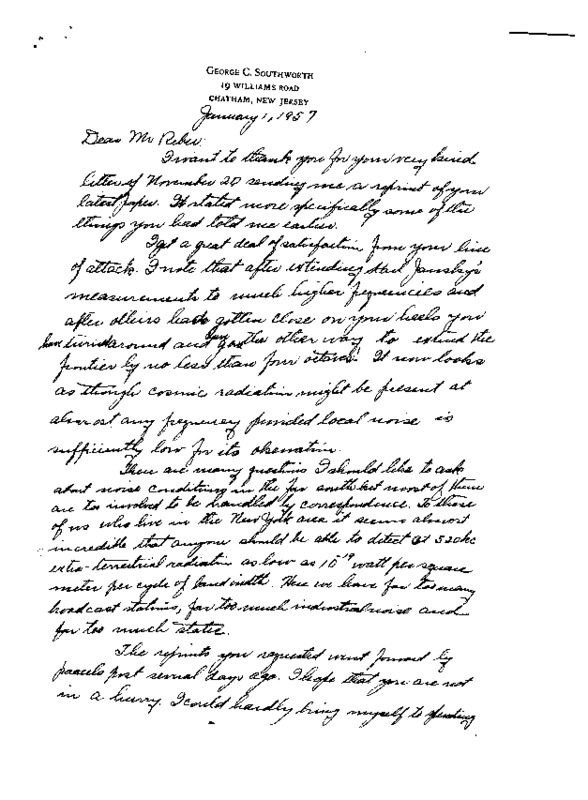 GEORGE C. SOUTHWORTH
19 WILLIAMS ROAD
CHATHAM, NEW JERSEY
January 1, 1957
Dear Mr Reber:
I want to thank you for your very kind
letter of November 20 sending me a reprint of your
latest paper. It stated more specifically some of the
things you had told me earlier.
I get a great deal of satisfaction from your line
of attack. I note that after extending Karl Jansky's
measurements to much higher frequencies and
after others had gotten close on your heels you
have turned around and gone the other way to extend the
frontier by no less than four octaves. It now looks
as though cosmic radiation might be present at
almost any frequency provided local noise is
sufficiently low for its obsenation.
There are many questions I should like to ask
about noise conditions in the far south but most of them
are too involved to be handled by correspondence. To those
of us who live in the New York area it seems almost
incredible that anyone should be able to detect at 520 kc
extra-terrestrial radiation as low as 10⁻¹⁹ watt per square
meter per cycle of bandwidth. Here we have far too many
broadcast stations, far too much industrial noise and
far too much static.
The reprints you requested went forward by
parcels post several days ago. I hope that you are not
in a hurry. I could hardly bring myself to